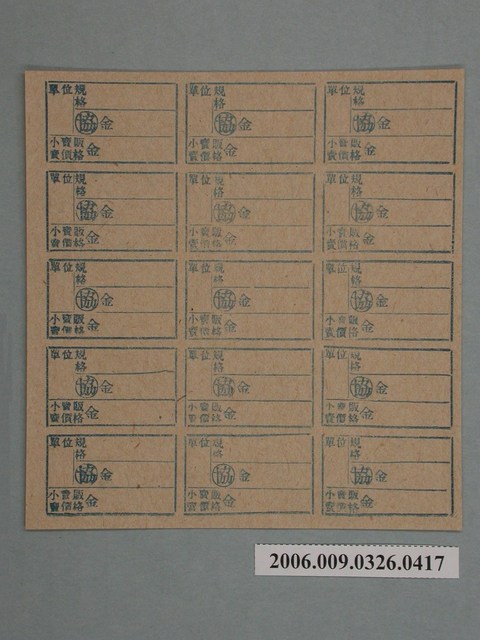 單位規格
協 金
小賣販賣價格 金
單位規格
協 金
小賣販賣價格 金
單位規格
協 金
小賣販賣價格 金
單位規格
協 金
小賣販賣價格 金
單位規格
協 金
小賣販賣價格 金
單位規格
協 金
小賣販賣價格 金
單位規格
協 金
小賣販賣價格 金
單位規格
協 金
小賣販賣價格 金
單位規格
協 金
小賣販賣價格 金
單位規格
協 金
小賣販賣價格 金
單位規格
協 金
小賣販賣價格 金
單位規格
協 金
小賣販賣價格 金
單位規格
協 金
小賣販賣價格 金
單位規格
協 金
小賣販賣價格 金
單位規格
協 金
小賣販賣價格 金
2006.009.0326.0417